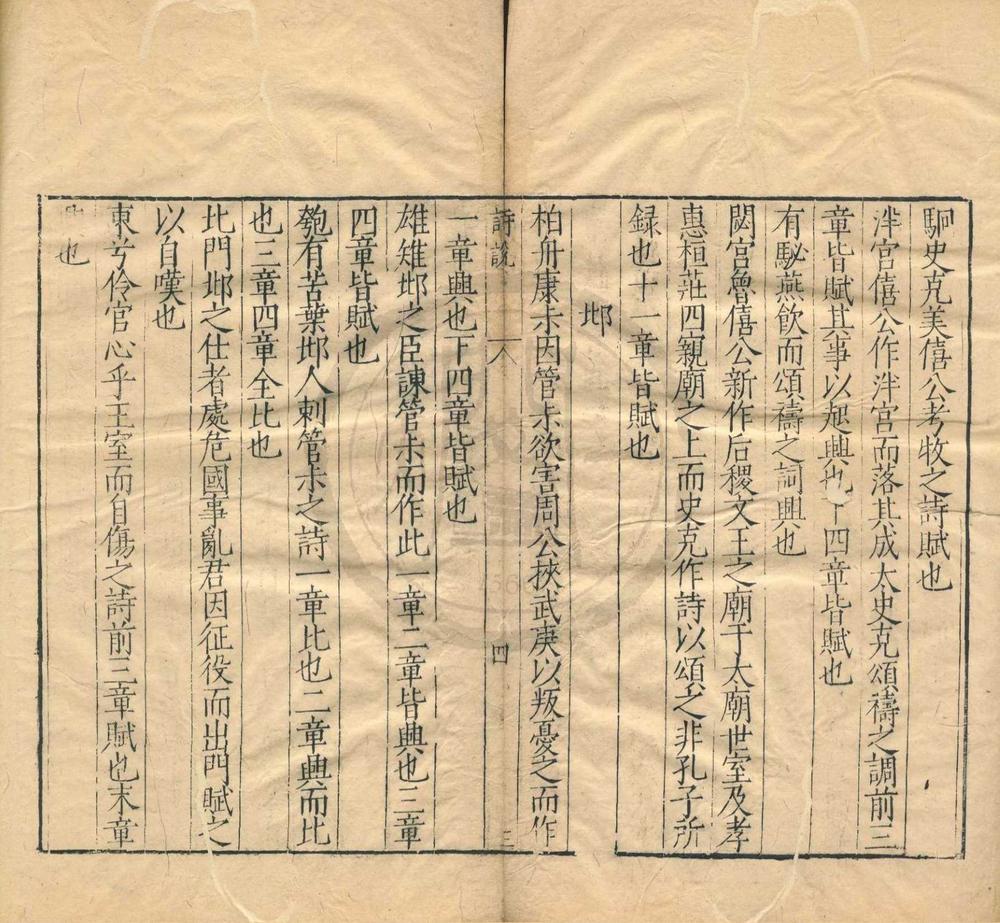 駉史克美僖公考牧之詩賦也
泮宮僖公作泮宮而落其成太史克頌禱之調前三
章皆賦其事以起興也下四章皆賦也
有駜燕飲而頌禱之詞興也
閟宮魯僖公新作后稷文王之廟于太廟世室及孝
惠桓莊四親廟之上而史克作詩以頌之非孔子所
録也十一章皆賦也
邶
柏舟康尗因管尗欲害周公挾武庚以叛憂之而作
詩說 四 三
一章興也下四章皆賦也
雄雉邶之臣諫管尗而作此一章二章皆興也三章
四章皆賦也
匏有苦葉邶人刺管尗之詩一章比也二章興而比
也三章四章全比也
北門邶之仕者處危國事亂君因征役而出門賦之
以自嘆也
柬兮伶官心乎王室而自傷之詩前三章賦也末章
也